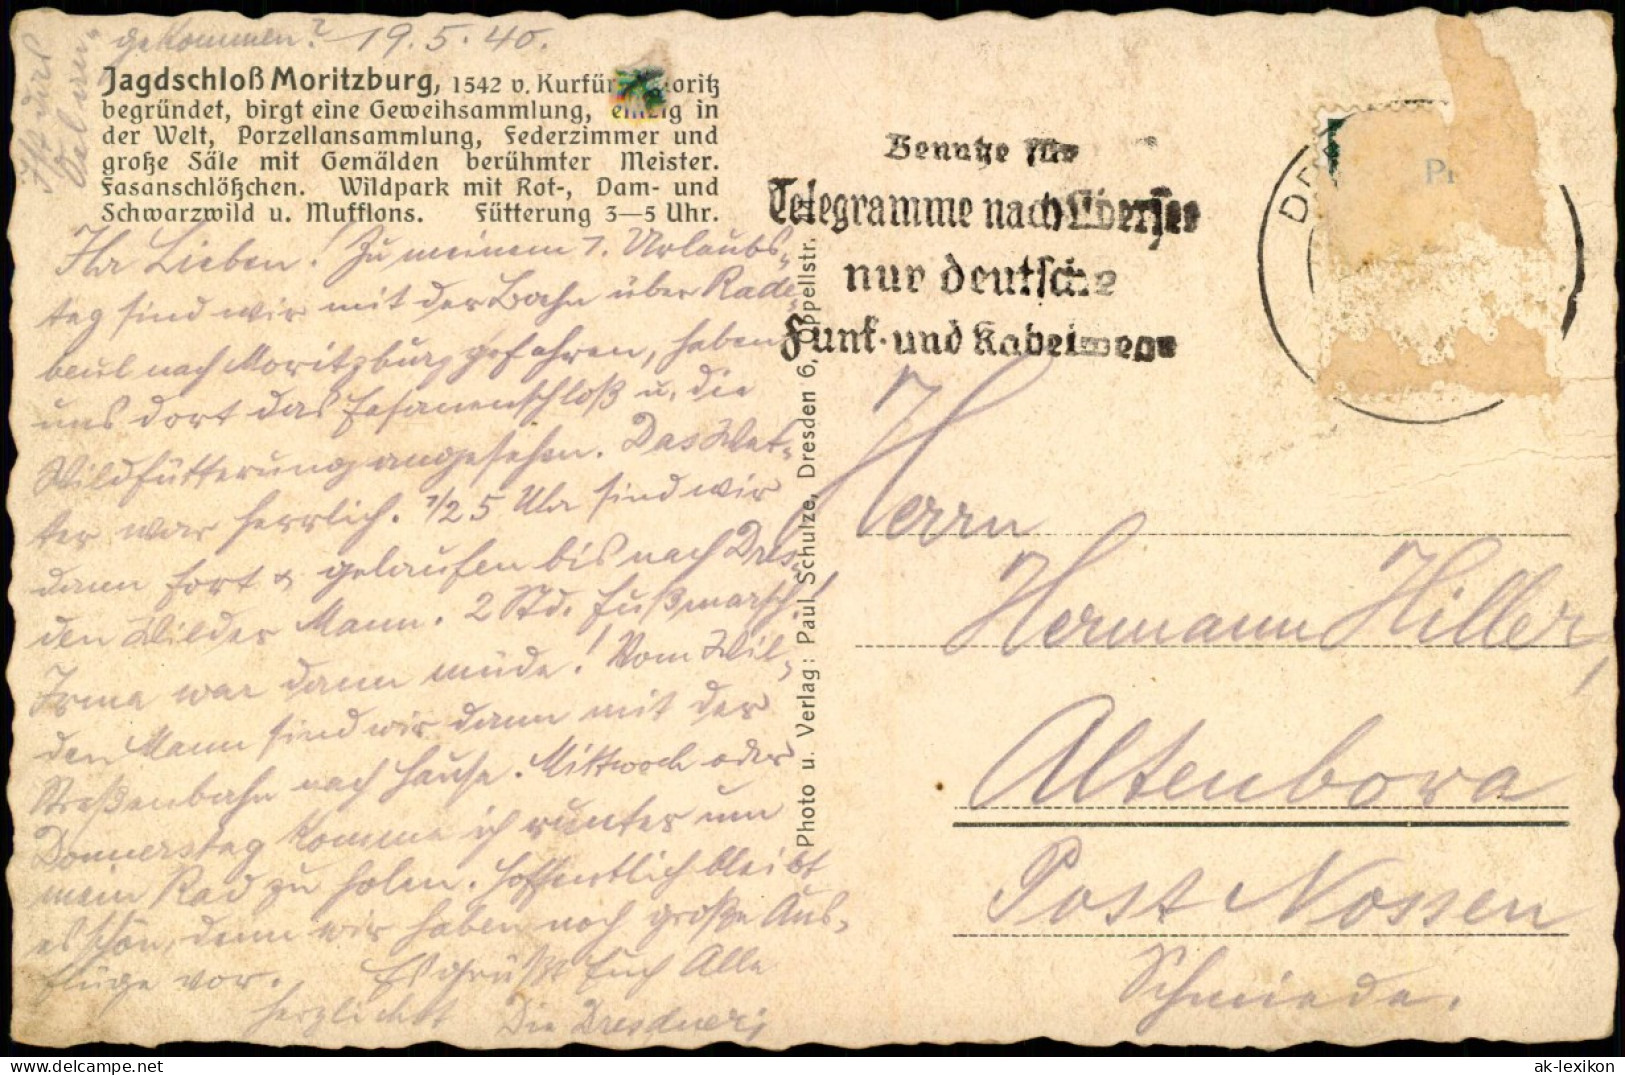 gekommen? 19.5.40.
Ist
Jagdschloß Moritzburg, 1542 v. Kurfür oritz
begründet, birgt eine Geweihsammlung, einzig in
der Welt, Porzellansammlung, Federzimmer und
große Säle mit Gemälden berühmter Meister.
Fasanschlößchen. Wildpark mit Rot-, Dam- und
Schwarzwild u. Mufflons. Fütterung 3—5 Uhr.
Ihr Lieben! Zu meinem 1. Urlaubs-
tag sind wir mit der Bahn über Rade-
beul nach Moritzburg gefahren, haben
uns dort das Fasanenschloß u. die
Wildfütterung angesehen. Das Wet-
ter war herrlich. 1/2 5 Uhr sind wir
dann fort & gelaufen bis nach Dres-
den Wilder Mann. 2 Std. Fußmarsch!
Irma war dann müde! Vom Wil-
den Mann sind wir dann mit der
Straßenbahn nach Hause. Mittwoch oder
Donnerstag komme ich runter um
mein Rad zu holen. Hoffentlich bleibt
es schön, denn wir haben noch große Aus-
flüge vor. Es grüßt Euch Alle
herzlichst Die Dresdner;
Photo u. Verlag: Paul Schulze, Dresden 6, Oppellstr.
Benutze für
Telegramme nach Übersee
nur deutsche
Funk- und Kabelwege
Herrn
Hermann Hiller,
Altenbora
Post Nossen
Schmiede.
ak-lexikon